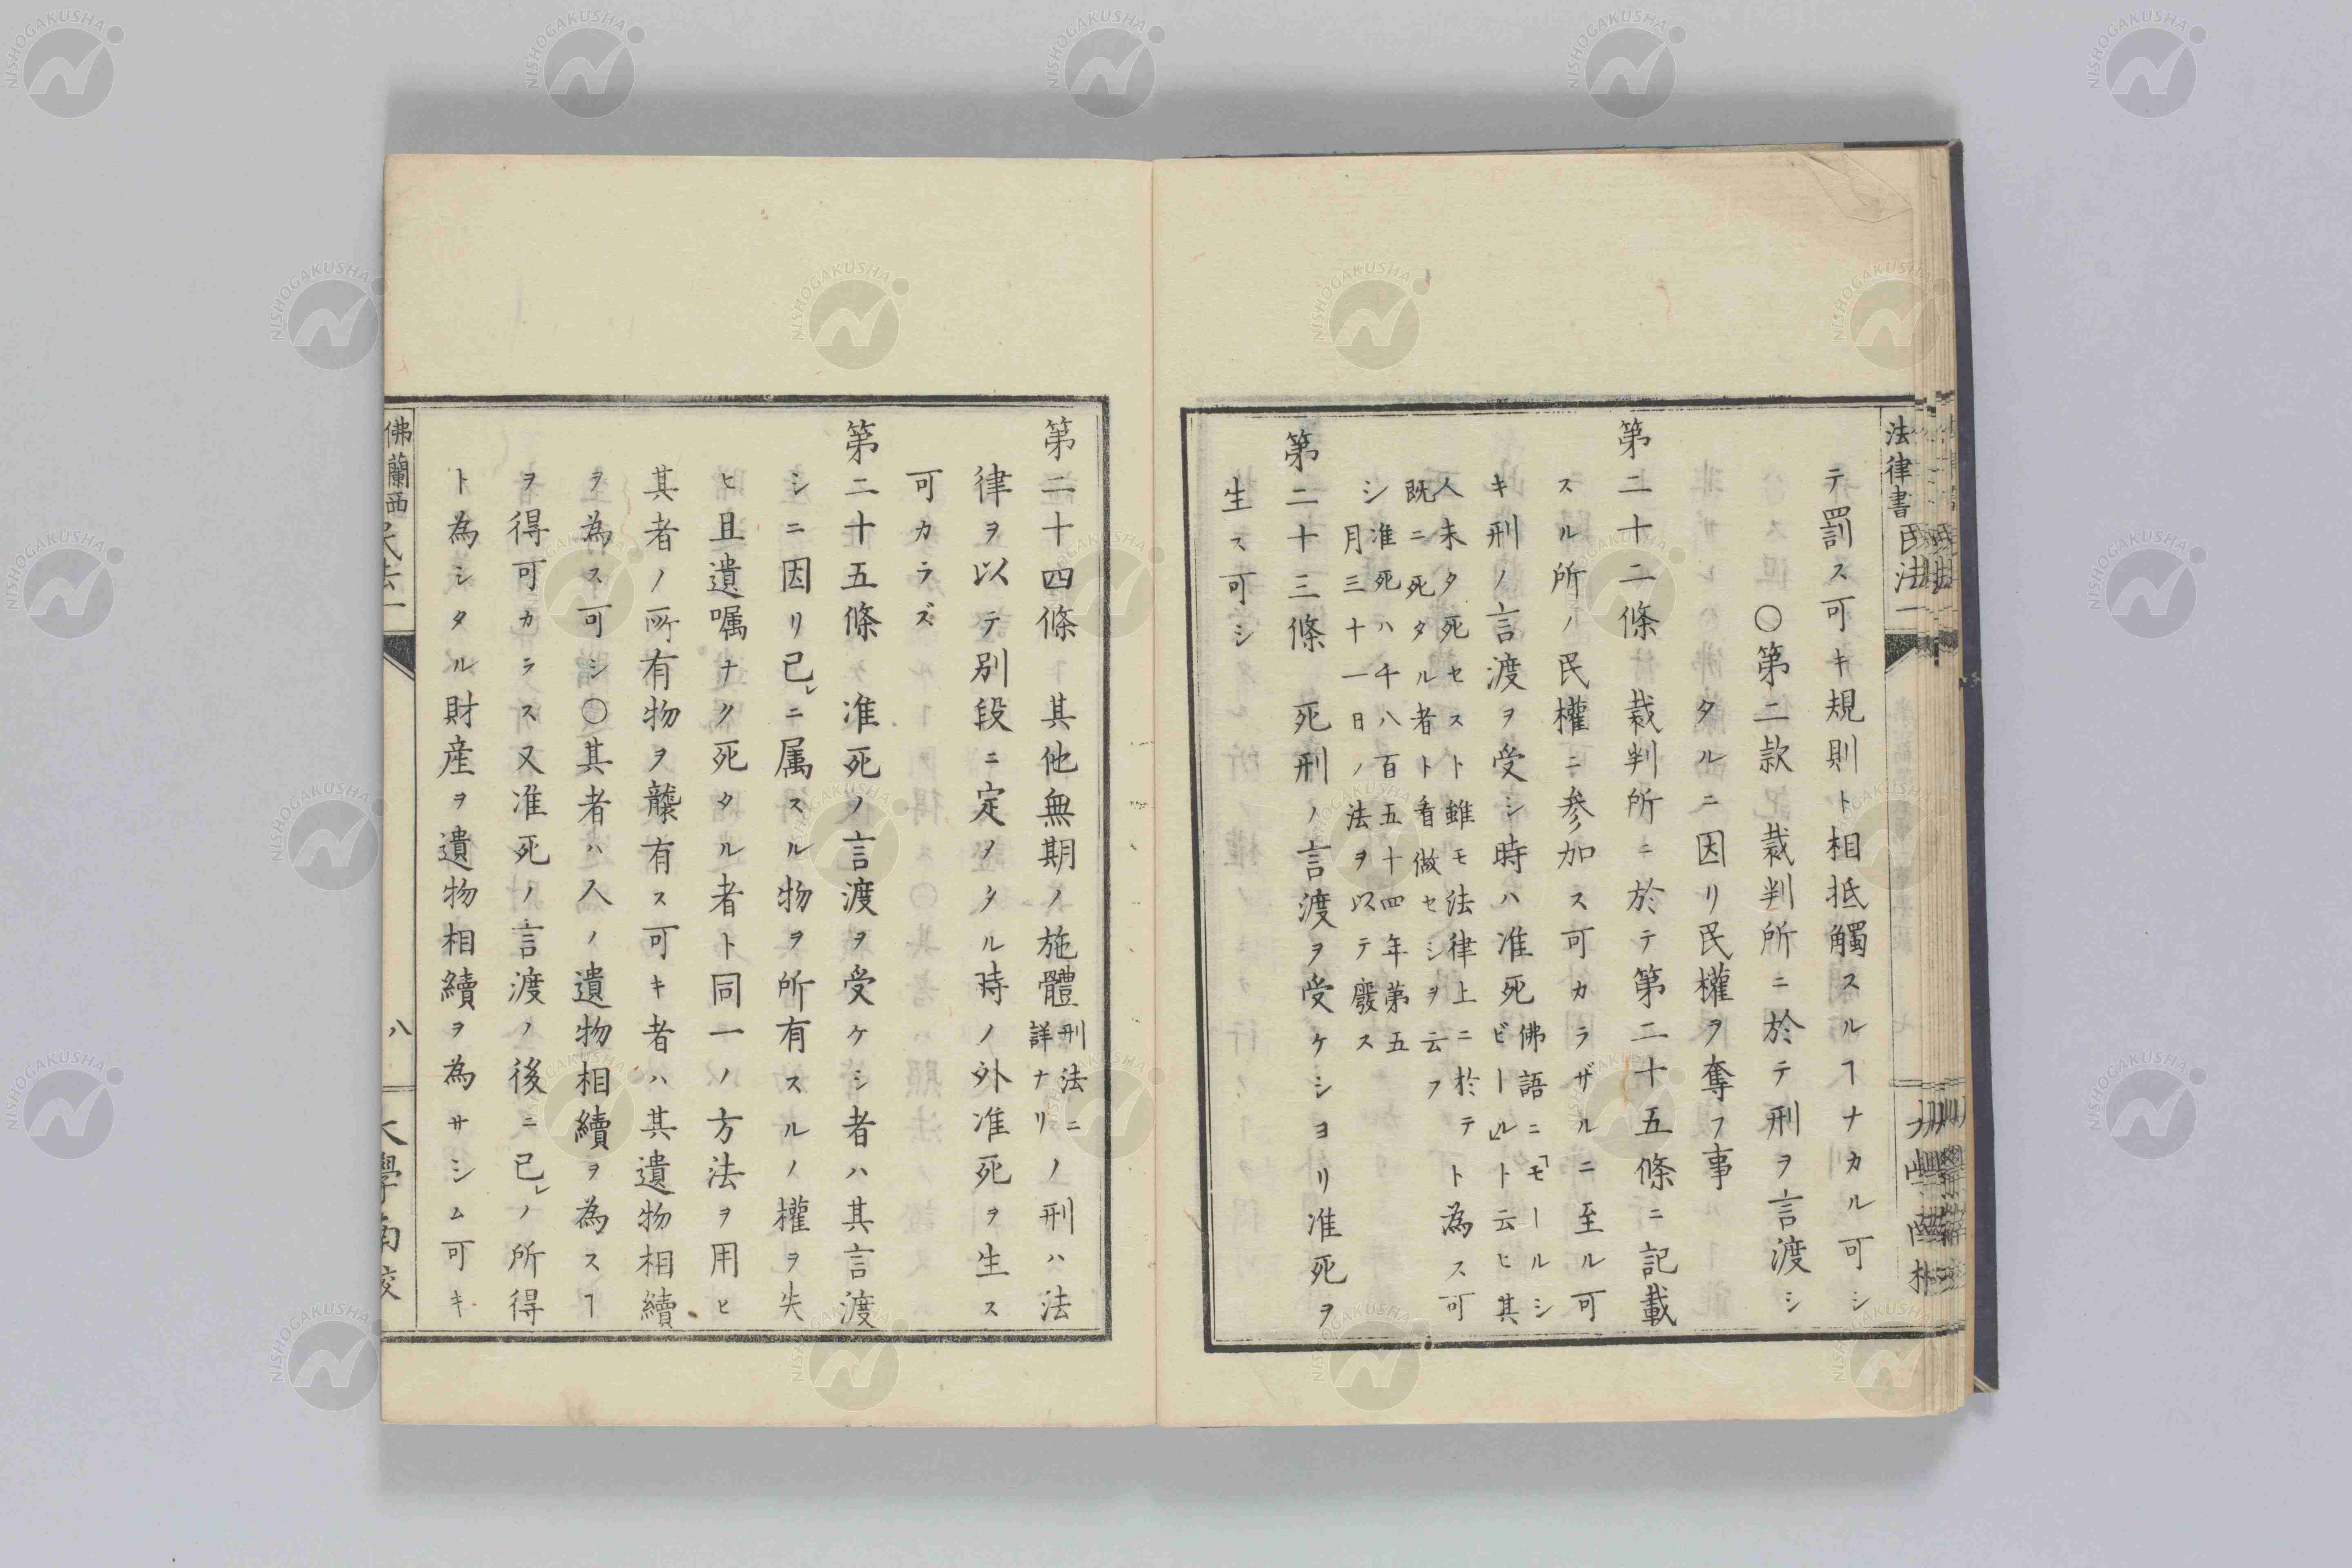 法律書 民法一
テ罰ス可キ規則ト相抵觸スルヿナカル可シ
〇第二款 裁判所ニ於テ刑ヲ言渡シ
タルニ因リ民權ヲ奪フ事
第二十二條 裁判所ニ於テ第二十五條ニ記載
スル所ノ民權ニ参加ス可カラザルニ至ル可
キ刑ノ言渡ヲ受シ時ハ准死
佛語ニ「モールシ
ビール」ト云ヒ其
人未タ死セスト雖モ法律上ニ於テ
既ニ死タル者ト看做セシヲ云フ
准死ハ千八百五十四年第五
月三十一日ノ法ヲ以テ廢ス
ト為ス可
シ
第二十三條 死刑ノ言渡ヲ受ケシヨリ准死ヲ
生ス可シ
第二十四條 其他無期ノ施體
刑法ニ
詳ナリ
ノ刑ハ法
律ヲ以テ別段ニ定メタル時ノ外准死ヲ生ス
可カラズ
第二十五條 准死ノ言渡ヲ受ケシ者ハ其言渡
シニ因リ已レニ属スル物ヲ所有スルノ權ヲ失
ヒ且遺嘱ナク死タル者ト同一ノ方法ヲ用ヒ
其者ノ所有物ヲ襲有ス可キ者ハ其遺物相續
ヲ為ス可シ〇其者ハ人ノ遺物相續ヲ為スヿ
ヲ得可カラス又准死ノ言渡ノ後ニ已レノ所得
ト為シタル財産ヲ遺物相續ヲ為サシム可キ
佛蘭西民法一
八
大學南校
NISHOGAKUSHA